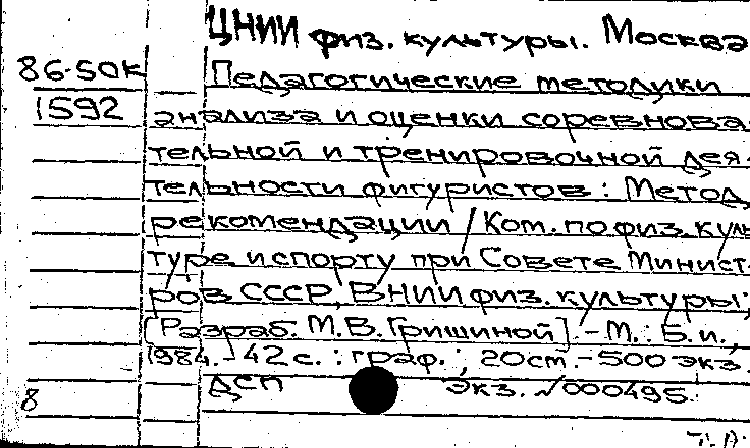 ЦНИИ физ. культуры. Москва
86-50К Педагогические методики
1592 анализа и оценки соревнова-
тельной и тренировочной дея-
тельности фигуристов : Метод.
рекомендации / Ком. по физ. куль
туре и спорту при Совете Минист-
ров СССР, ВНИИ физ. культуры;
[Разраб. М.В. Гришиной]. - М. : Б. и.,
1984. - 42 с. : граф. ; 20 см. - 500 экз.
ДСП Экз. √000495.
8